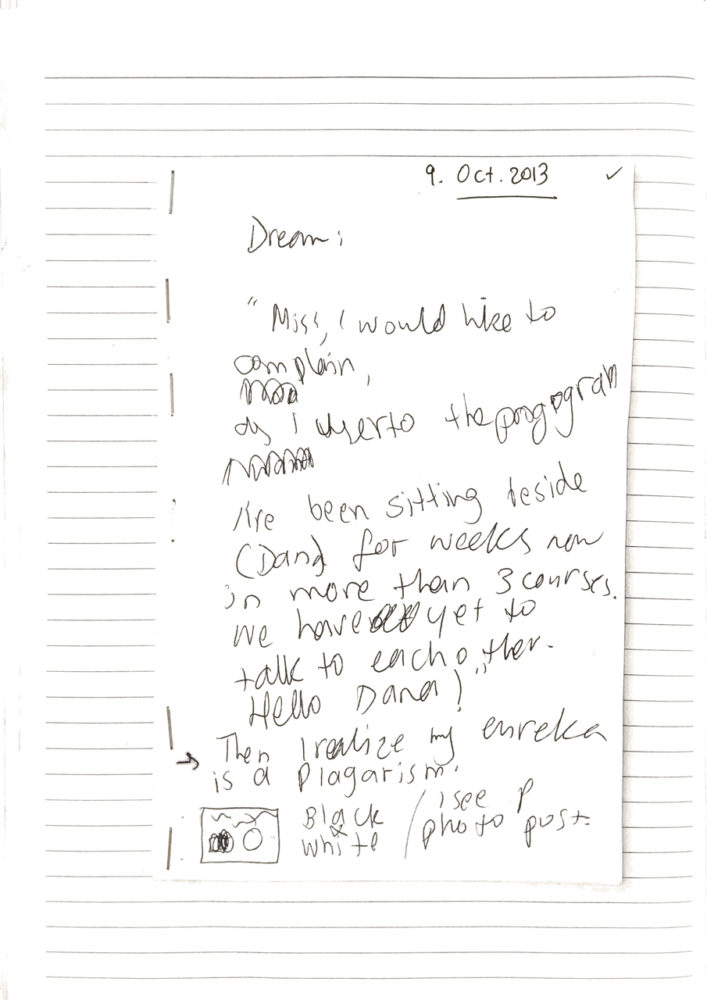 9. Oct. 2013 ✓
Dream:
"Miss, I would like to
complain,
as I to the
I've been sitting beside
(Dana) for weeks now
in more than 3 courses.
We have yet to
talk to each other.
Hello Dana!"
→ Then I realize my eureka
is a Plagarism.
Black / I see P
& photo post.
white